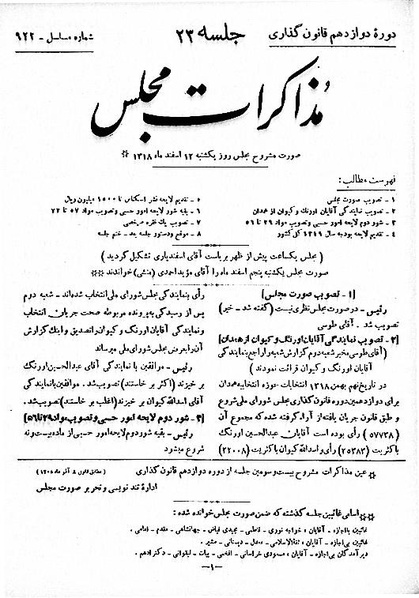 دورهٔ دوازدهم قانون گذاری
جلسه ۲۳
شماره مسلسل - ۹۲۲
مذاکرات مجلس
صورت مشروح مجلس روز یکشنبه ۱۲ اسفند ماه ۱۳۱۸
فهرست مطالب:
۱ - تصویب صورت مجلس
۲ - تصویب نمایندگی آقایان اورنگ و کیوان از همدان
۳ - شور دوم لایحه امور حسبی و تصویب مواد ۲۹ تا ۵۶
۴ - تقدیم لایحه بودجه سال ۱۳۱۹ کل کشور
۵ - تقدیم لایحه نشر اسکناس تا ۱۵۰۰ میلیون ریال
۶ - بقیه شور لایحه امور حسبی و تصویب مواد ۵۷ تا ۷۲
۷ - تصویب یک فقره مرخصی
۸ - موقع و دستور جلسه بعد - ختم جلسه
(مجلس یکساعت پیش از ظهر بریاست آقای اسفندیاری تشکیل گردید)
صورت مجلس یکشنبه پنجم اسفند ماه را آقای مؤید احمدی (منشی) خواندند
[۱ - تصویب صورت مجلس]
رئیس - در صورت مجلس نظری نیست (گفته شد - خیر)
تصویب شد. آقای طوسی
[۲ - تصویب نمایندگی آقایان اورنگ و کیوان از همدان]
(آقای طوسی مخبر شعبه دوم گزارش شعبه را راجع بنمایندگی
آقایان اورنگ و کیوان قرائت نمودند)
در تاریخ نهم بهمن ۱۳۱۸ انتخابات حوزه انتخابیه همدان
برای دوره دوازدهم قانون گذاری مجلس شورای ملی شروع
و طبق قانون جریان یافته از آراء گرفته شده که مجموع آن
(۵۷۷۳۸) رأی بوده است آقایان عبدالحسین اورنگ
با کثریت (۲۵۳۸۲) رأی و اسدالله کیوان با کثریت (۲۲۰۰۸)
رأی بنمایندگی مجلس شورای ملی انتخاب شده‌اند - شعبه دوم
پس از رسیدگی به پرونده مربوطه صحت جریان انتخاب
و نمایندگی آقایان اورنگ و کیوان را تصدیق و اینک گزارش
آن را بعرض مجلس شورای ملی میرساند
رئیس - موافقین با نمایندگی آقای عبدالحسین اورنگ
بر خیزند (اکثر بر خاستند) تصویب شد. موافقین با نمایندگی
آقای اسدالله کیوان بر خیزند (اغلب بر خاستند) تصویب شد.
[۳ - شور دوم لایحه امور حسبی و تصویب مواد ۲۹ تا ۵۶]
رئیس - بقیه شور دوم لایحه امور حسبی از ماده بیست و نه
شروع میشود
عین مذاکرات مشروح بیست و سومین جلسه از دوره دوازدهم قانون گذاری
اداره تند نویسی و تحریر صورت مجلس
اسامی غائبین جلسه گذشته که ضمن صورت مجلس خوانده شده:
غائبین با اجازه - آقایان:
غائبین بی اجازه - آقایان:
دیر آمدگان بی اجازه - آقایان:
-۱-